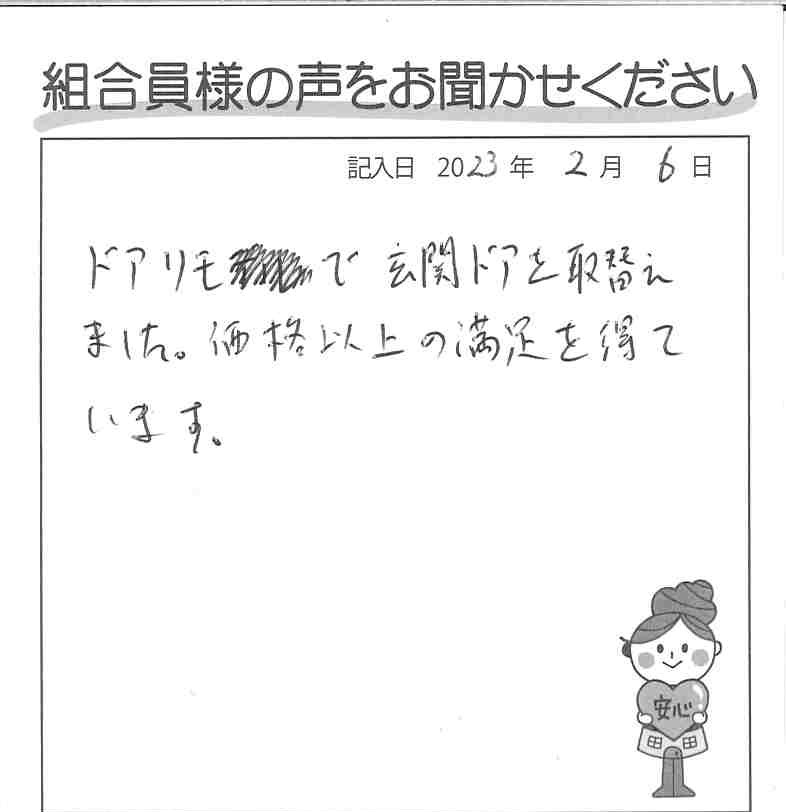 組合員様の声をお聞かせください
記入日 2023年 2月 6日
ドアリモで 玄関ドアを取替え
ました。価格以上の満足を得て
います。
安心